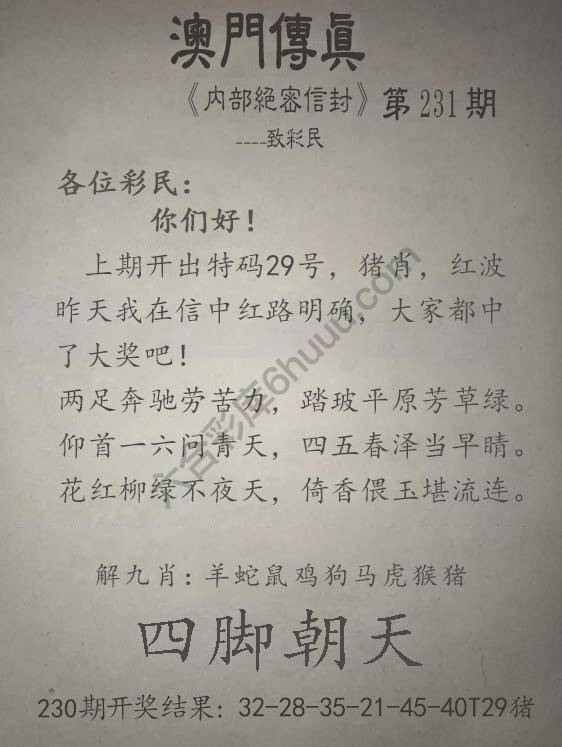 澳門傳真
《内部絕密信封》第231期
----致彩民
各位彩民：
你们好！
上期开出特码29号，猪肖，红波
昨天我在信中红路明确，大家都中
了大奖吧！
两足奔驰劳苦力，踏玻平原芳草绿。
仰首一六问青天，四五春泽当早晴。
花红柳绿不夜天，倚香偎玉堪流连。
六合彩库6huuu.com
解九肖：羊蛇鼠鸡狗马虎猴猪
四脚朝天
230期开奖结果：32-28-35-21-45-40T29猪